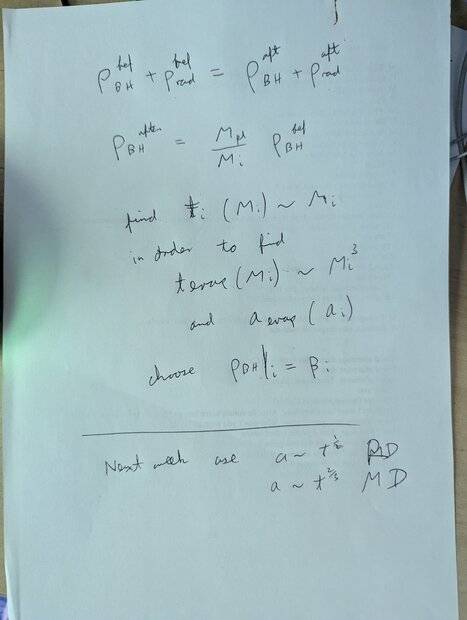 ρ_BH^bef + ρ_rad^bef = ρ_BH^aft + ρ_rad^aft
ρ_BH^after = M_pl/M_i ρ_BH^bef
find t_i (M_i) ~ M_i
in order to find
t_evap (M_i) ~ M_i^3
and a_evap (a_i)
choose ρ_BH|_i = β_i
Next week use a ~ t^1/2 RD
a ~ t^2/3 MD